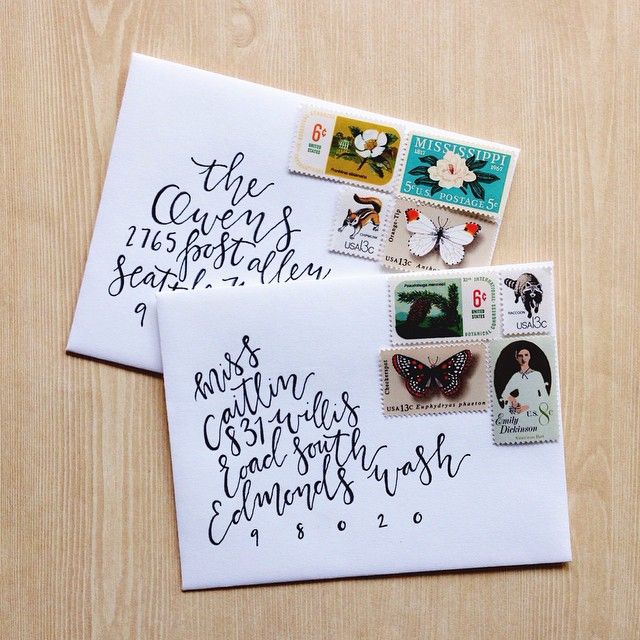 the
Owens
2765 post alley
Seattle
9
6¢
UNITED STATES
MISSISSIPPI
1817 1967
5¢ U.S. POSTAGE 5¢
USA13c
Orange-Tip
USA 13c
miss
Caitlin
831 willis
road south
Edmonds wash
9 8 0 2 0
6¢
UNITED STATES
RACCOON
USA13c
Checkerspot
USA13c Euphydryas phaeton
Emily
Dickinson
U.S. 8¢
American Poet